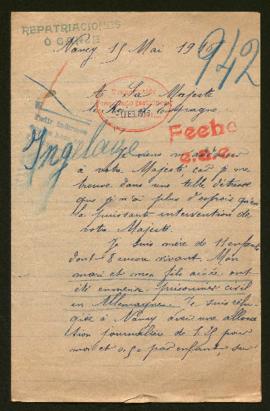 REPATRIACIONES
O CANJE
942
Nancy 15 Mai 191
A Sa Majesté
le Roi d'Espagne
Fecho
Je viens m'adresser
à votre Majesté car je me
trouve dans une telle détresse
que je n'ai plus d'espoir qu'en
la puissante intervention de
votre Majesté.
Je suis mère de 11 enfants
dont 8 encore vivant. Mon
mari et mon fils ainée, ont
été emmené prisonnier civil
en Allemagne. Je suis réfu-
giée à Nancy avec une alloca
tion journalière de 1.25 pour
moi et 0.50 par enfant, sur